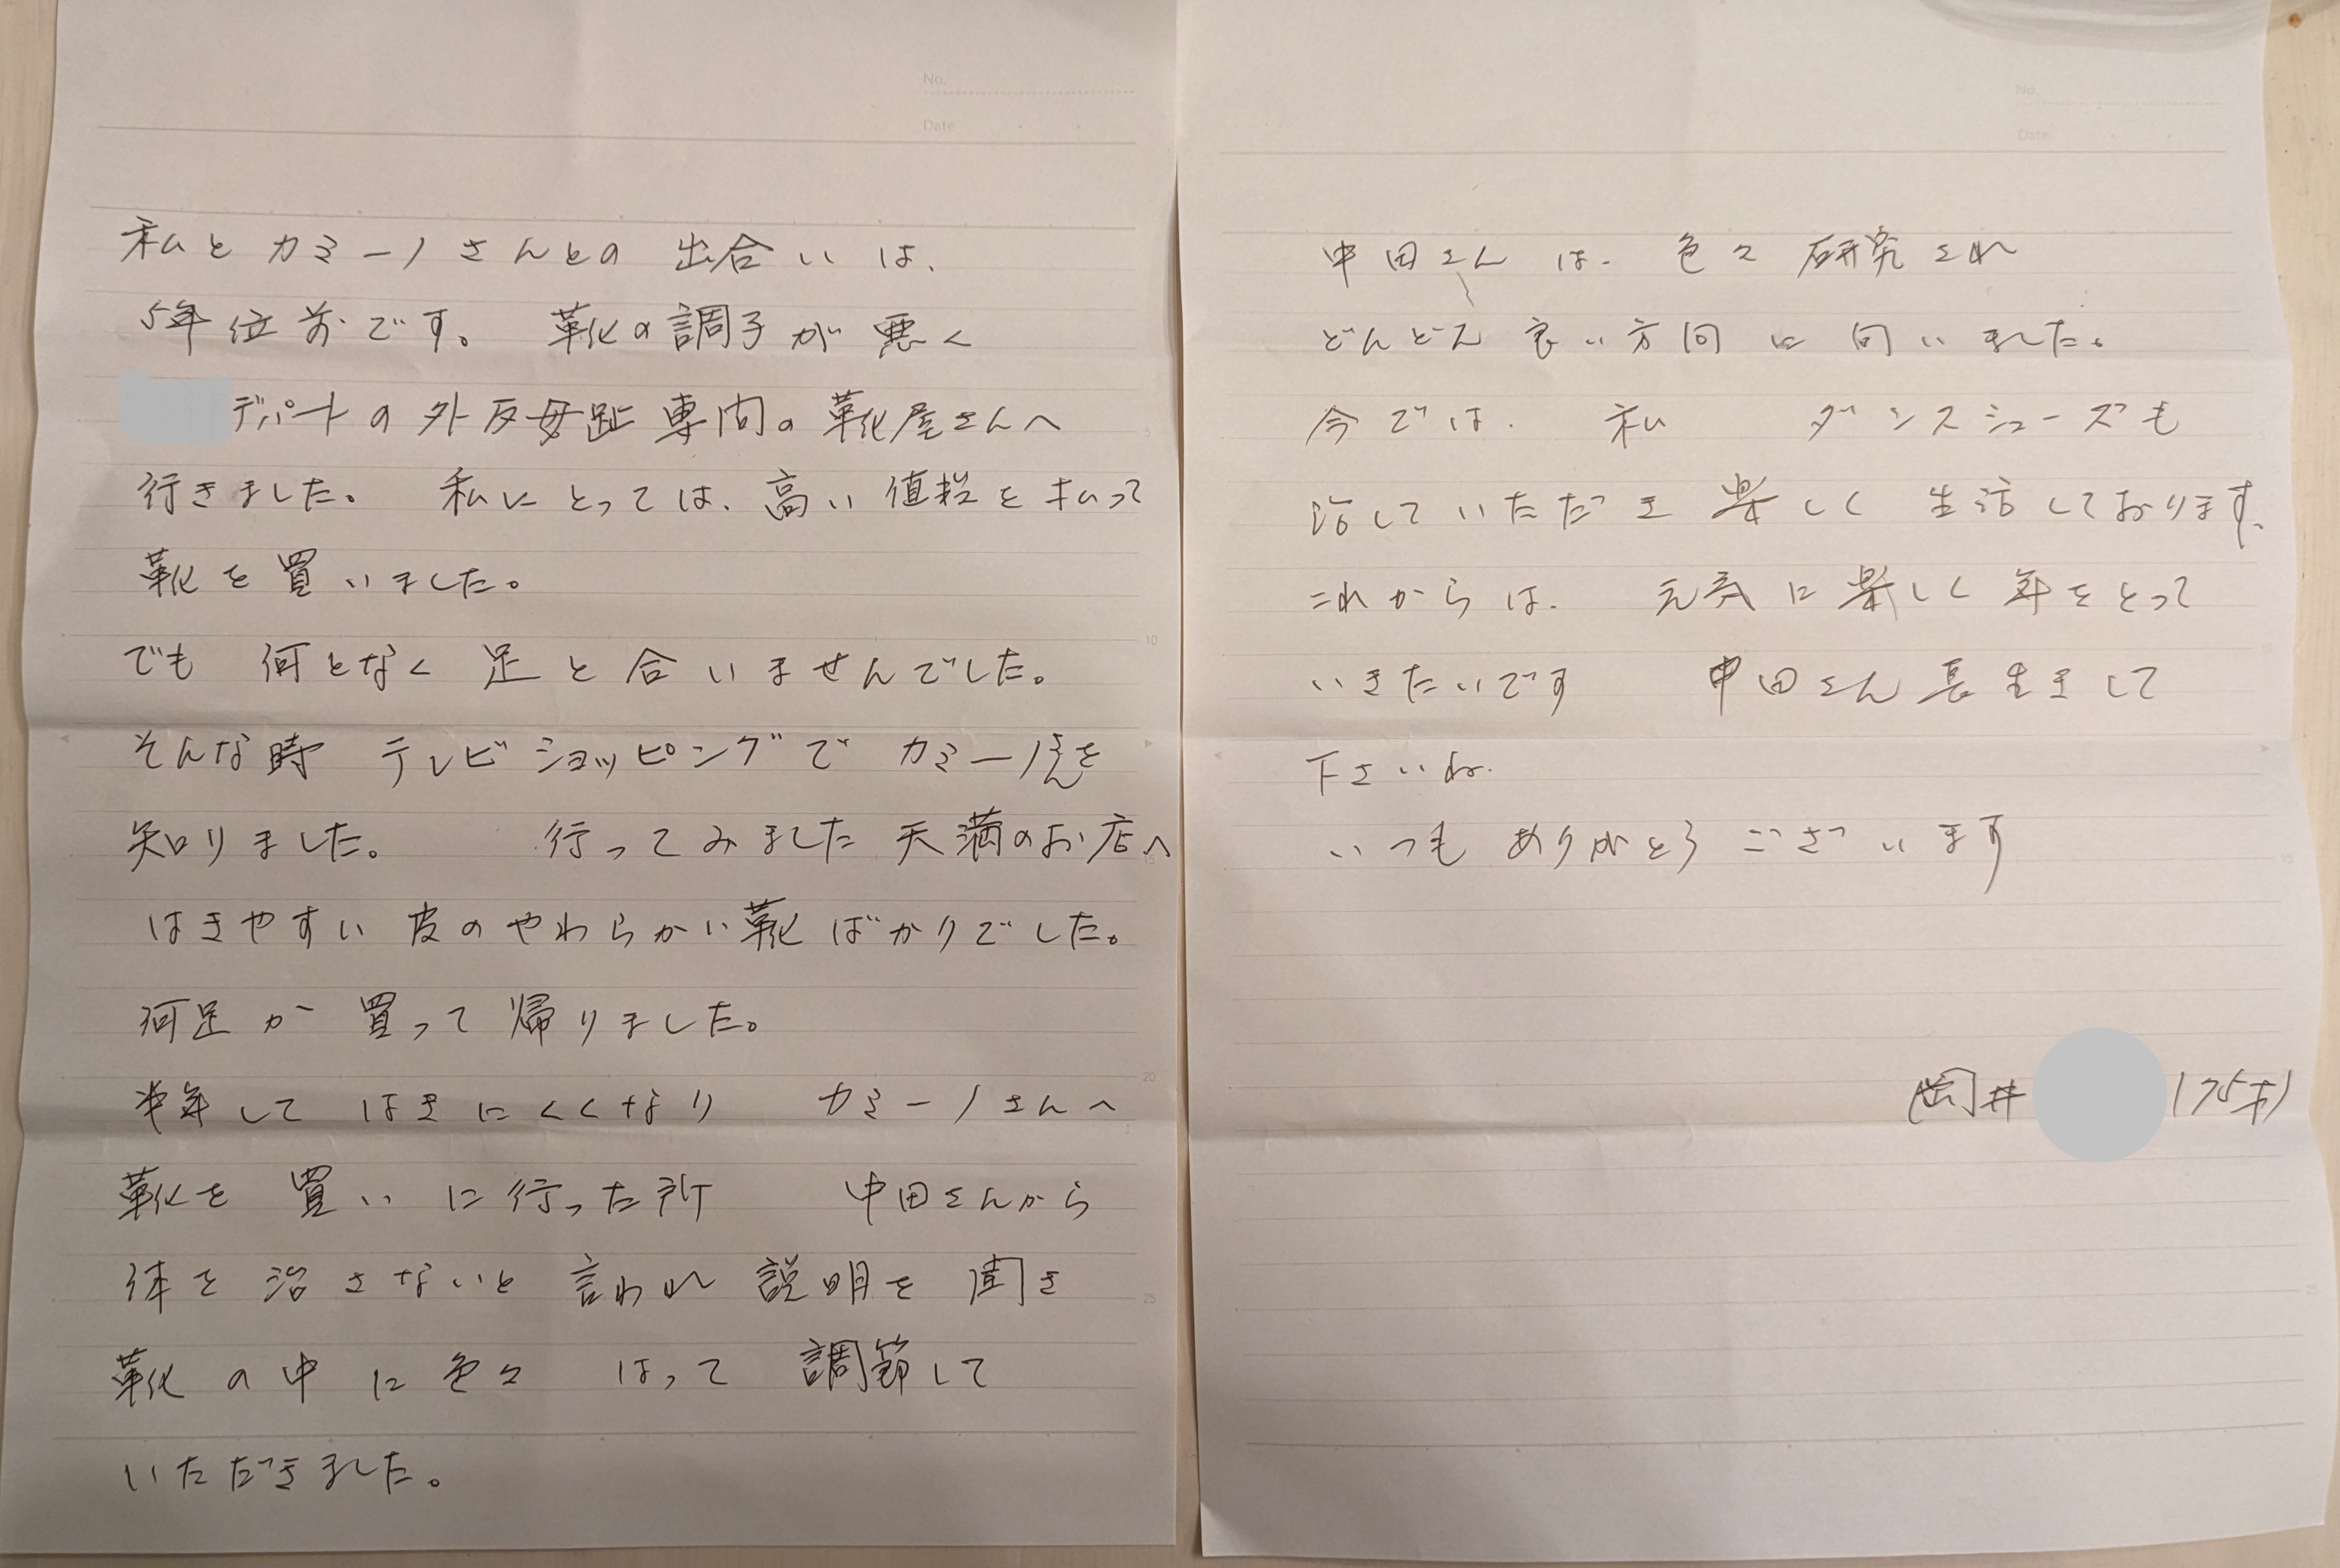 No.
Date
私とカミーノさんとの出合いは、
5年位前です。 靴の調子が悪く
デパートの外反母趾専門の靴屋さんへ
行きました。 私にとっては、高い値段を払って
靴を買いました。
でも 何となく足と合いませんでした。
そんな時 テレビショッピングで カミーノさんを
知りました。 行ってみました 天満のお店へ
はきやすい皮のやわらかい靴ばかりでした。
何足か買って帰りました。
半年して はきにくくなり カミーノさんへ
靴を買いに行った所 中田さんから
体を治さないと言われ 説明を聞き
靴の中に色々 はって 調節して
いただきました。
No.
Date
中田さんは、色々研究され
どんどん良い方向に向いました。
今では、 私 ダンスシューズも
治していただき楽しく生活しております。
これからは、 元気に楽しく年をとって
いきたいです 中田さん長生きして
下さいね。
いつもありがとうございます
岡井 (75才)
5
10
15
20
25
15
25